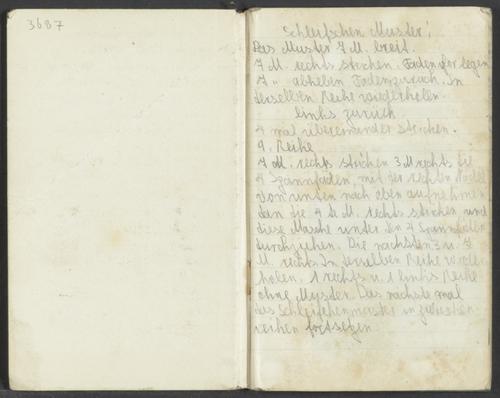 3687
Schleifchen Muster!
Das Muster 7 M. breit.
7 M. rechts stricken. Faden vor legen
7 " abheben Faden zurück. In
derselben Reihe wiederholen.
links zurück
4 mal übereinander stricken.
9. Reihe
7 M. rechts stricken 3 M rechts die
4 Spannfäden, mit der rechten Nadel
von unten nach oben aufnehmen
dan die 4 te M. rechts stricken und
diese Masche unter den 4 Spannfäden
durchziehen. Die nächsten 3 u. 7
M. rechts. In derselben Reihe wieder
holen. 1 rechts u. 1 links Reihe
ohne Muster. Das nächste mal
das Schleifchenmuster in
reihen fortsetzen